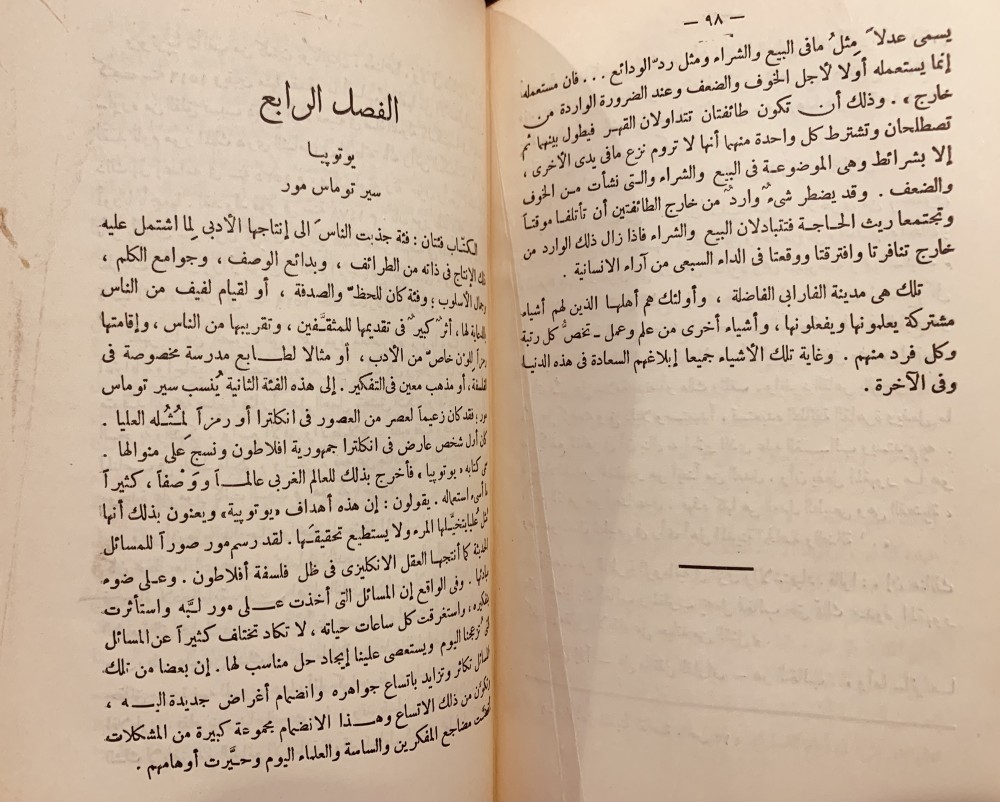 — ٩٨ —
يسمى عدلاً مثلُ مافى البيع والشراء ومثل ردّ الودائع ... فان مستعمله
إنما يستعمله أولا لأجل الخوف والضعف وعند الضرورة الواردة من
خارج» . وذلك أن تكون طائفتان تتداولان القهر فيطول بينهما ثم
تصطلحان وتشترط كل واحدة منهما أنها لا تروم نزع مافى يدى الأخرى ،
إلا بشرائط وهى الموضوعة فى البيع والشراء والتى نشأت من الخوف
والضعف . وقد يضطر شىءٌ واردٌ من خارج الطائفتين أن تأتلفا موقتاً
وتجتمعا ريث الحاجة فتتبادلان البيع والشراء فاذا زال ذلك الوارد من
خارج تنافرتا وافترقتا ووقعتا فى الداء السبعى من آراء الانسانية .
تلك هى مدينة الفارابى الفاضلة ، وأولئك هم أهلها الذين لهم أشياء
مشتركة يعلمونها ويفعلونها ، وأشياء أخرى من علم وعمل ـ تخصُّ كل رتبة
وكل فرد منهم . وغاية تلك الأشياء جميعا إبلاغهم السعادة فى هذه الدنيا
وفى الآخرة .
الفصل الرابع
يوتوپيا
سير توماس مور
الكتّاب فئتان : فئة جذبت الناسَ الى إنتاجها الأدبى لِما اشتمل عليه
ذلك الإنتاج فى ذاته من الطرائف ، وبدائع الوصف ، وجوامع الكلم ،
وجمال الأسلوب ؛ وفئة كان للحظّ والصدفة ، أو لقيام لفيف من الناس
بالدعاية لها ، أثرٌ كبيرٌ فى تقديمها للمثقَّفين ، وتقريبها من الناس ، وإقامتها
رمزاً للون خاصّ من الأدب ، أو مثالا لطابع مدرسة مخصوصة فى
الفلسفة ، أو مذهب معين فى التفكير . إلى هذه الفئة الثانية يُنسب سير توماس
مور ؛ فقد كان زعيماً لعصر من العصور فى انكلترا أو رمزاً لِمُثُله العليا .
كان أول شخص عارض فى انكلترا جمهورية افلاطون ونسج على منوالها .
كتابه «يوتوپيا» ، فأخرج بذلك للعالم الغربى عالماً ووَصْفاً ، كثيراً
ما أسىء استعماله . يقولون : إن هذه أهداف «يوتوپية» ويعنون بذلك أنها
مُثل عُليا يتخيَّلها المرء ولا يستطيع تحقيقَها . لقد رسم مور صوراً للمسائل
الحديثة كما أنتجها العقل الانكليزى فى ظل فلسفة أفلاطون . وعلى ضوء
مبادئها . وفى الواقع إن المسائل التى أخذت على مور لبَّه واستأثرت
بتفكيره ، واستغرقت كل ساعات حياته ، لا تكاد تختلف كثيراً عن المسائل
التى تُزعجنا اليوم ويستعصى علينا إيجاد حل مناسب لها . إن بعضا من تلك
المسائل تكاثر وتزايد باتساع جواهره وانضمام أغراض جديدة اليه ،
وتكوّن من ذلك الاتساع وهذا الانضمام مجموعة كبيرة من المشكلات
مضاجع المفكرين والساسة والعلماء اليوم وحيَّرت أوهامهم .